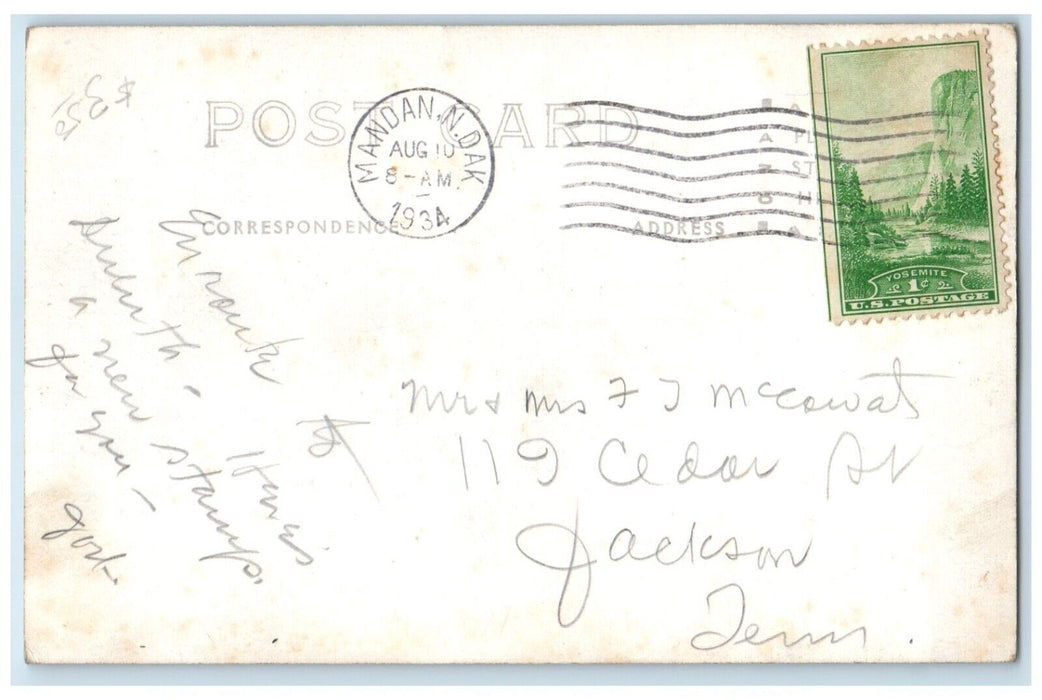 $ 350
POST CARD
MANDAN, N. DAK
AUG 10
8 - AM.
1934
CORRESPONDENCE
ADDRESS
YOSEMITE
1¢
U.S. POSTAGE
Enroute to
Duluth - Here's
a new stamp
for you -
Mr & Mrs F J McCowat
119 Cedar St
Jackson
Tenn.